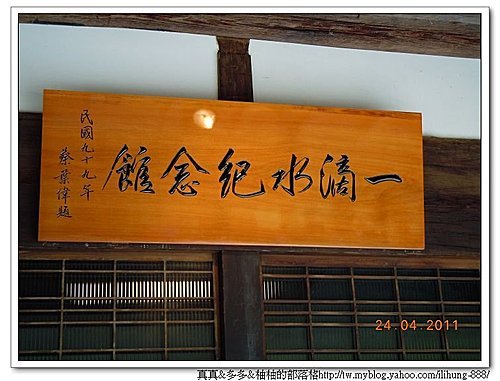 一滴水紀念館
民國九十九年
蔡葉偉題
24.04.2011
真真&多多&柚柚的部落格http://tw.myblog.yahoo.com/ilihung-888/